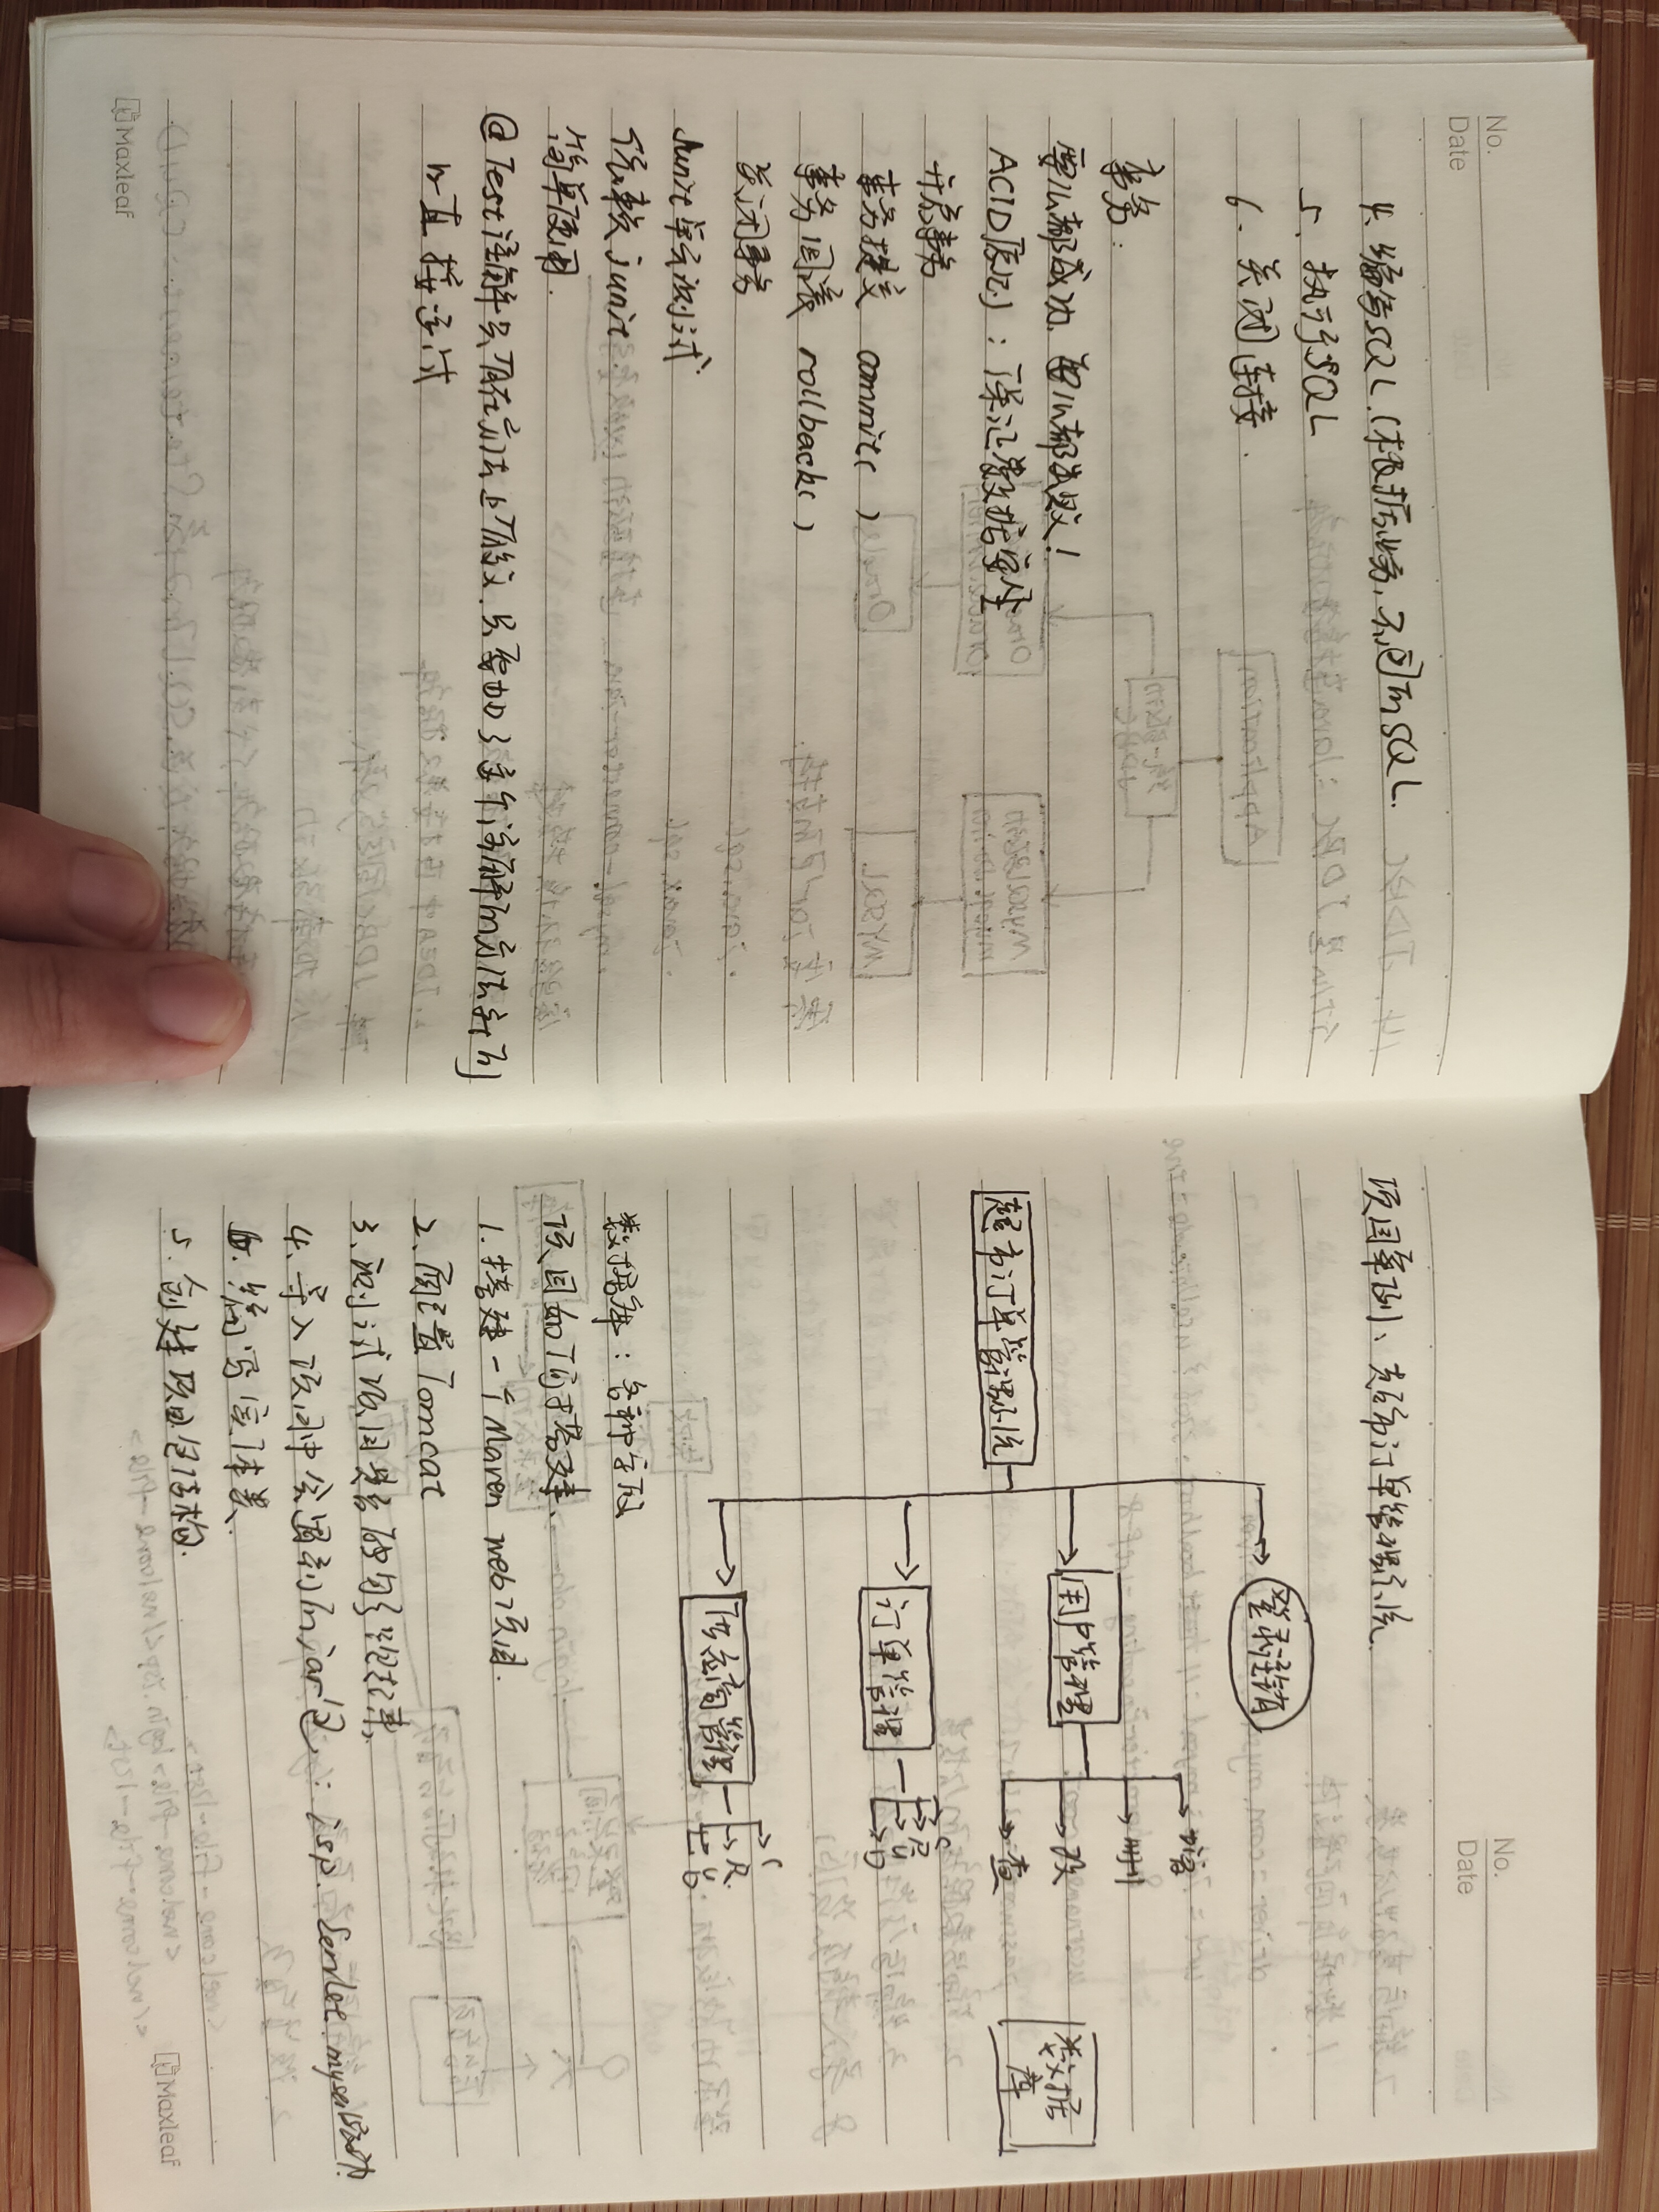 No.
Date
4. 编写SQL.(根据业务,不同的SQL.
5. 执行SQL
6. 关闭连接.
事务:
要么都成功、要么都失败!
ACID原则:保证数据安全
开启事务
事务提交 commit()
事务回滚 rollback()
关闭事务
Junit单元测试
依赖 junit
简单使用.
@Test注解只有在方法上有效.只要加了这个注解的方法,就可
以直接运行
Maxleaf
No.
Date
项目案例、超市订单管理系统
登录注销
超市订单管理系统
用户管理
增
删
改
查
数据
库
订单管理
供应商管理
数据库:各种字段
项目如何搭建、
1. 搭建一个Maven web项目.
2. 配置Tomcat
3. 测试项目是否能够跑起来,
4. 导入项目中会遇到的jar包,: jsp. Servlet. mysql驱动.
编写实体类、
5. 创建项目包结构.
Maxleaf